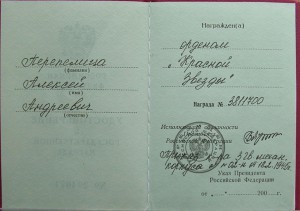 Перепелица
(фамилия)
Алексей
(имя)
Андреевич
(отчество)
Награжден(а)
орденом
"Красной
Звезды"
Награда № 3811700
Исполняющий обязанности
Президента
Российской Федерации
Приказ к-ра 326
Указ Президента
Российской Федерации
от « » 200 г.